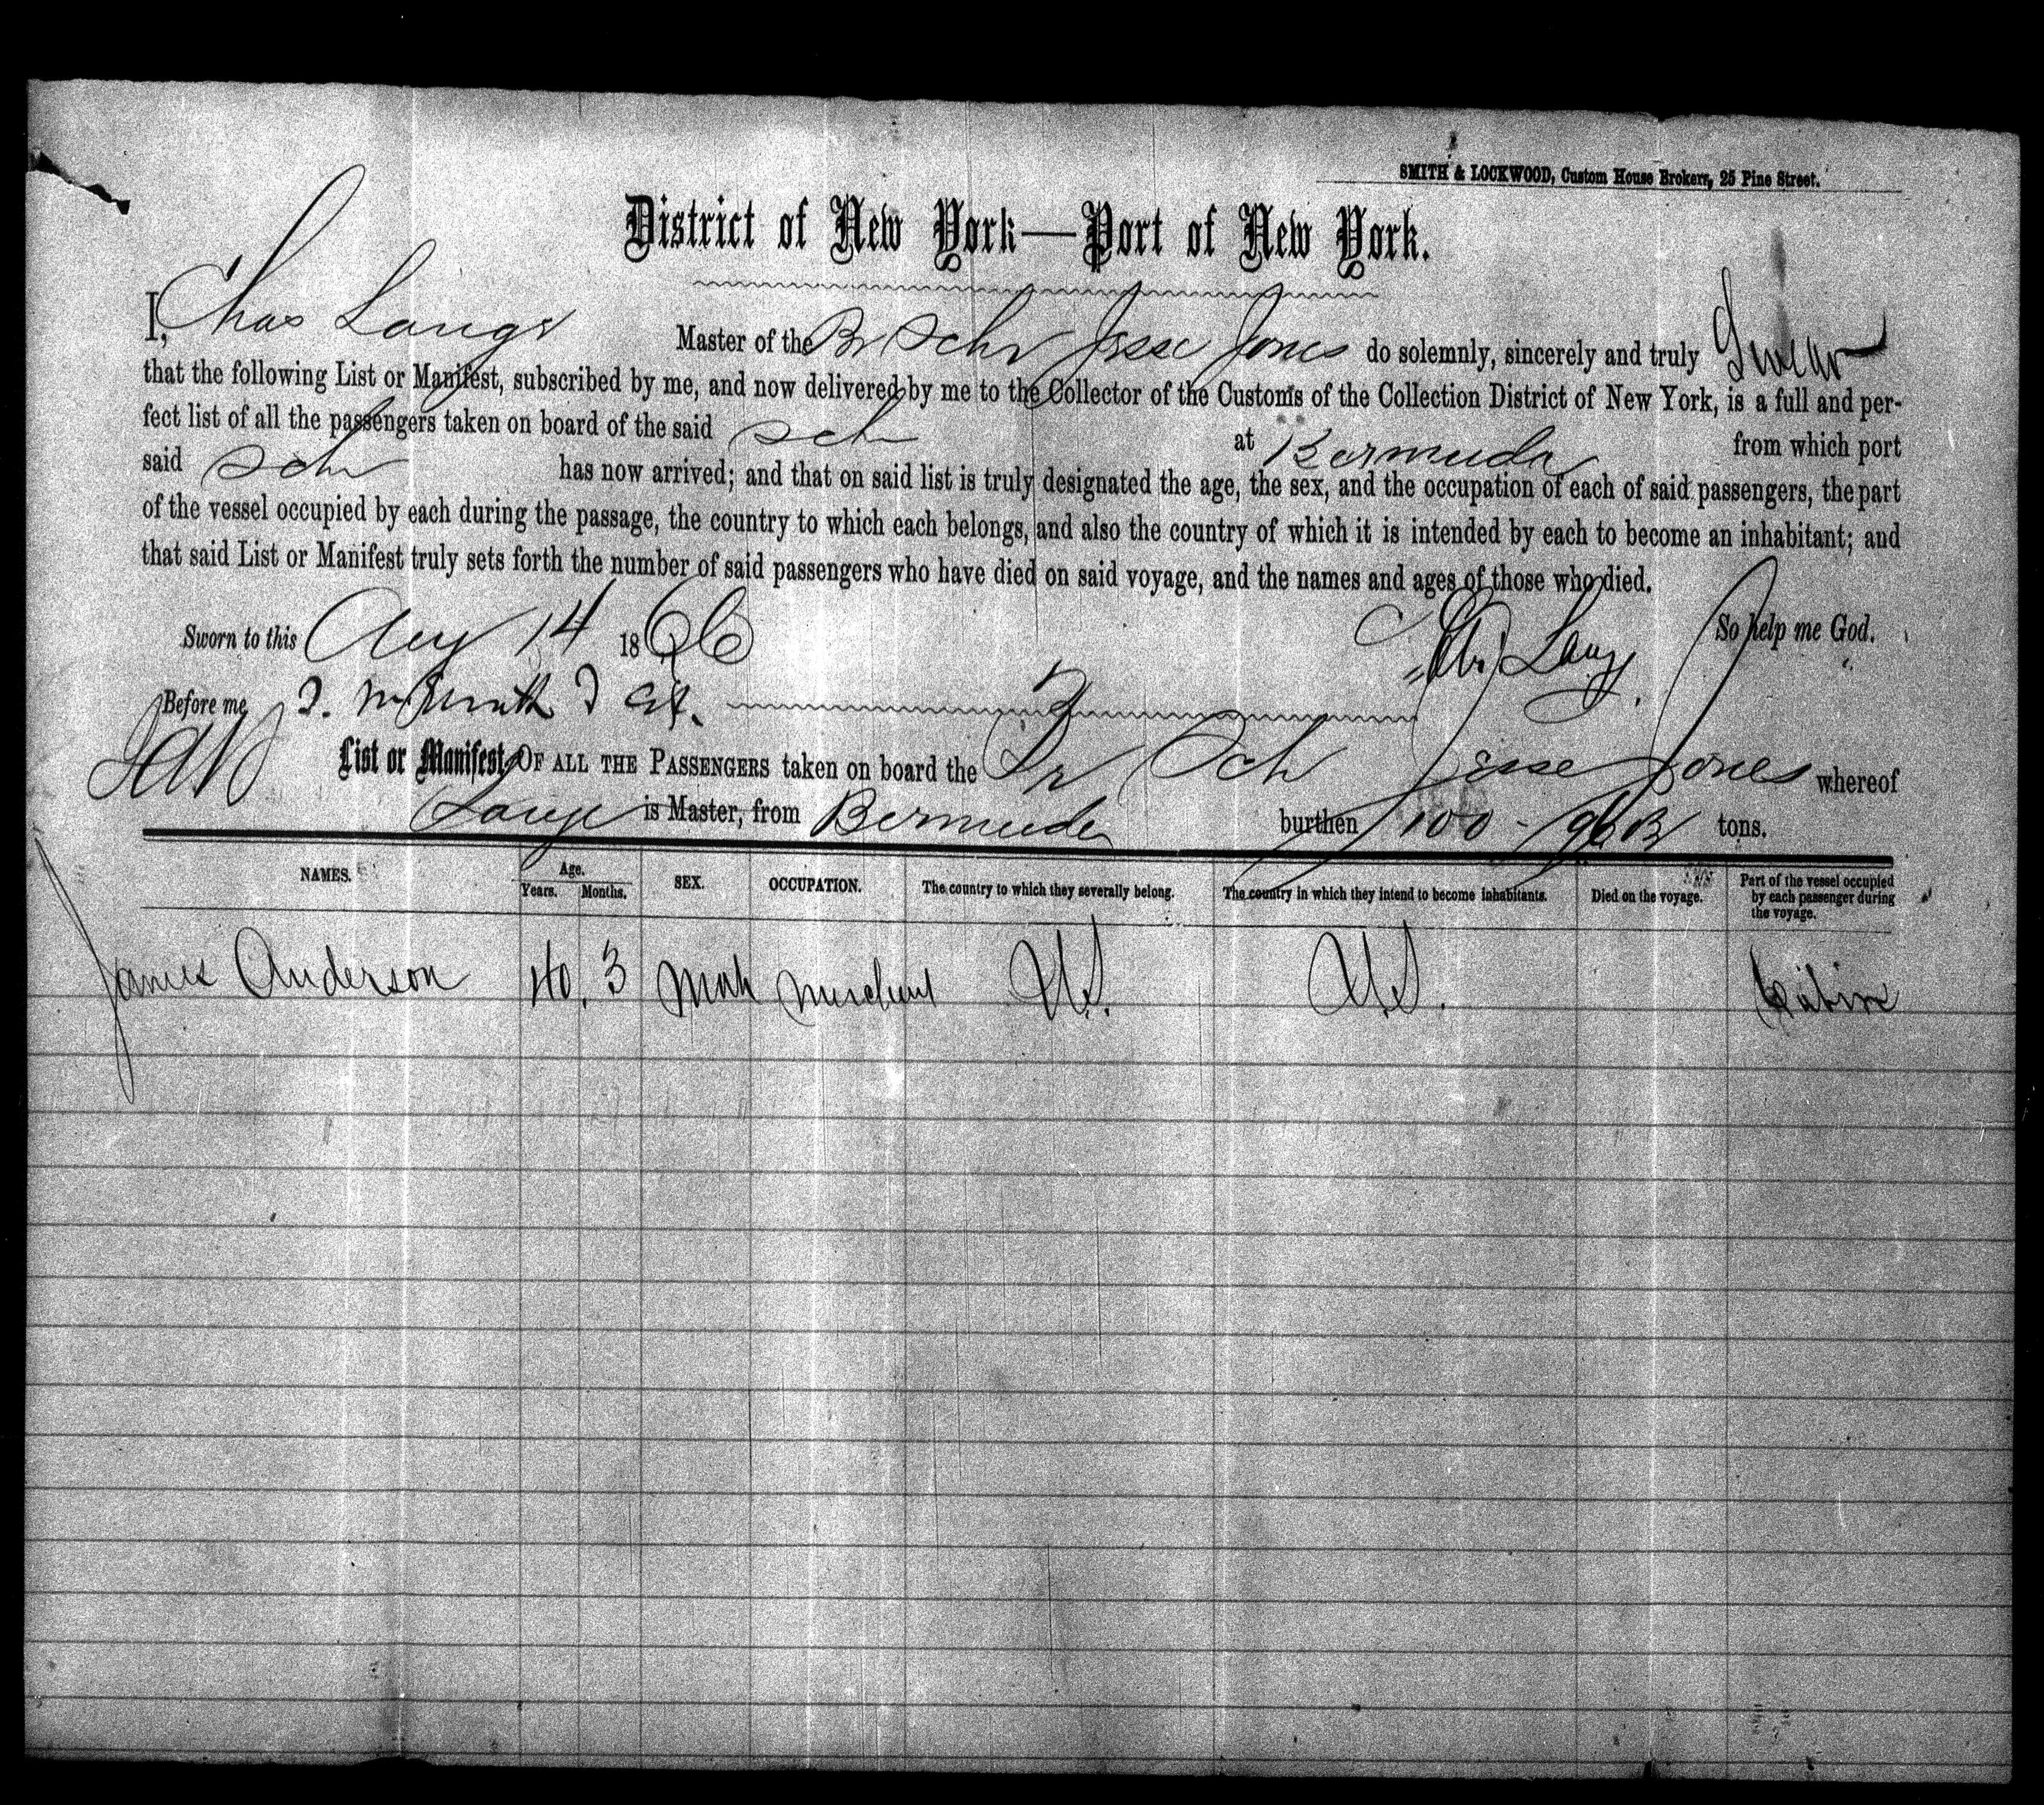 SMITH & LOCKWOOD, Custom House Brokers, 25 Pine Street.
District of New York—Port of New York.
I, Chas Lange Master of the Br Schr Jesse Jones do solemnly, sincerely and truly Swear
that the following List or Manifest, subscribed by me, and now delivered by me to the Collector of the Customs of the Collection District of New York, is a full and per-
fect list of all the passengers taken on board of the said sch at Bermuda from which port
said schr has now arrived; and that on said list is truly designated the age, the sex, and the occupation of each of said passengers, the part
of the vessel occupied by each during the passage, the country to which each belongs, and also the country of which it is intended by each to become an inhabitant; and
that said List or Manifest truly sets forth the number of said passengers who have died on said voyage, and the names and ages of those who died.
Sworn to this Aug 14 1866 Lange So help me God.
Before me
List or Manifest OF ALL THE PASSENGERS taken on board the Br Sch Jesse Jones whereof
Lange is Master, from Bermuda burthen 100 tons.
NAMES. Age. Years. Months. SEX. OCCUPATION. The country to which they severally belong. The country in which they intend to become inhabitants. Died on the voyage. Part of the vessel occupied by each passenger during the voyage.
James Anderson 40. 3 Male Merchant U.S. U.S. Cabin